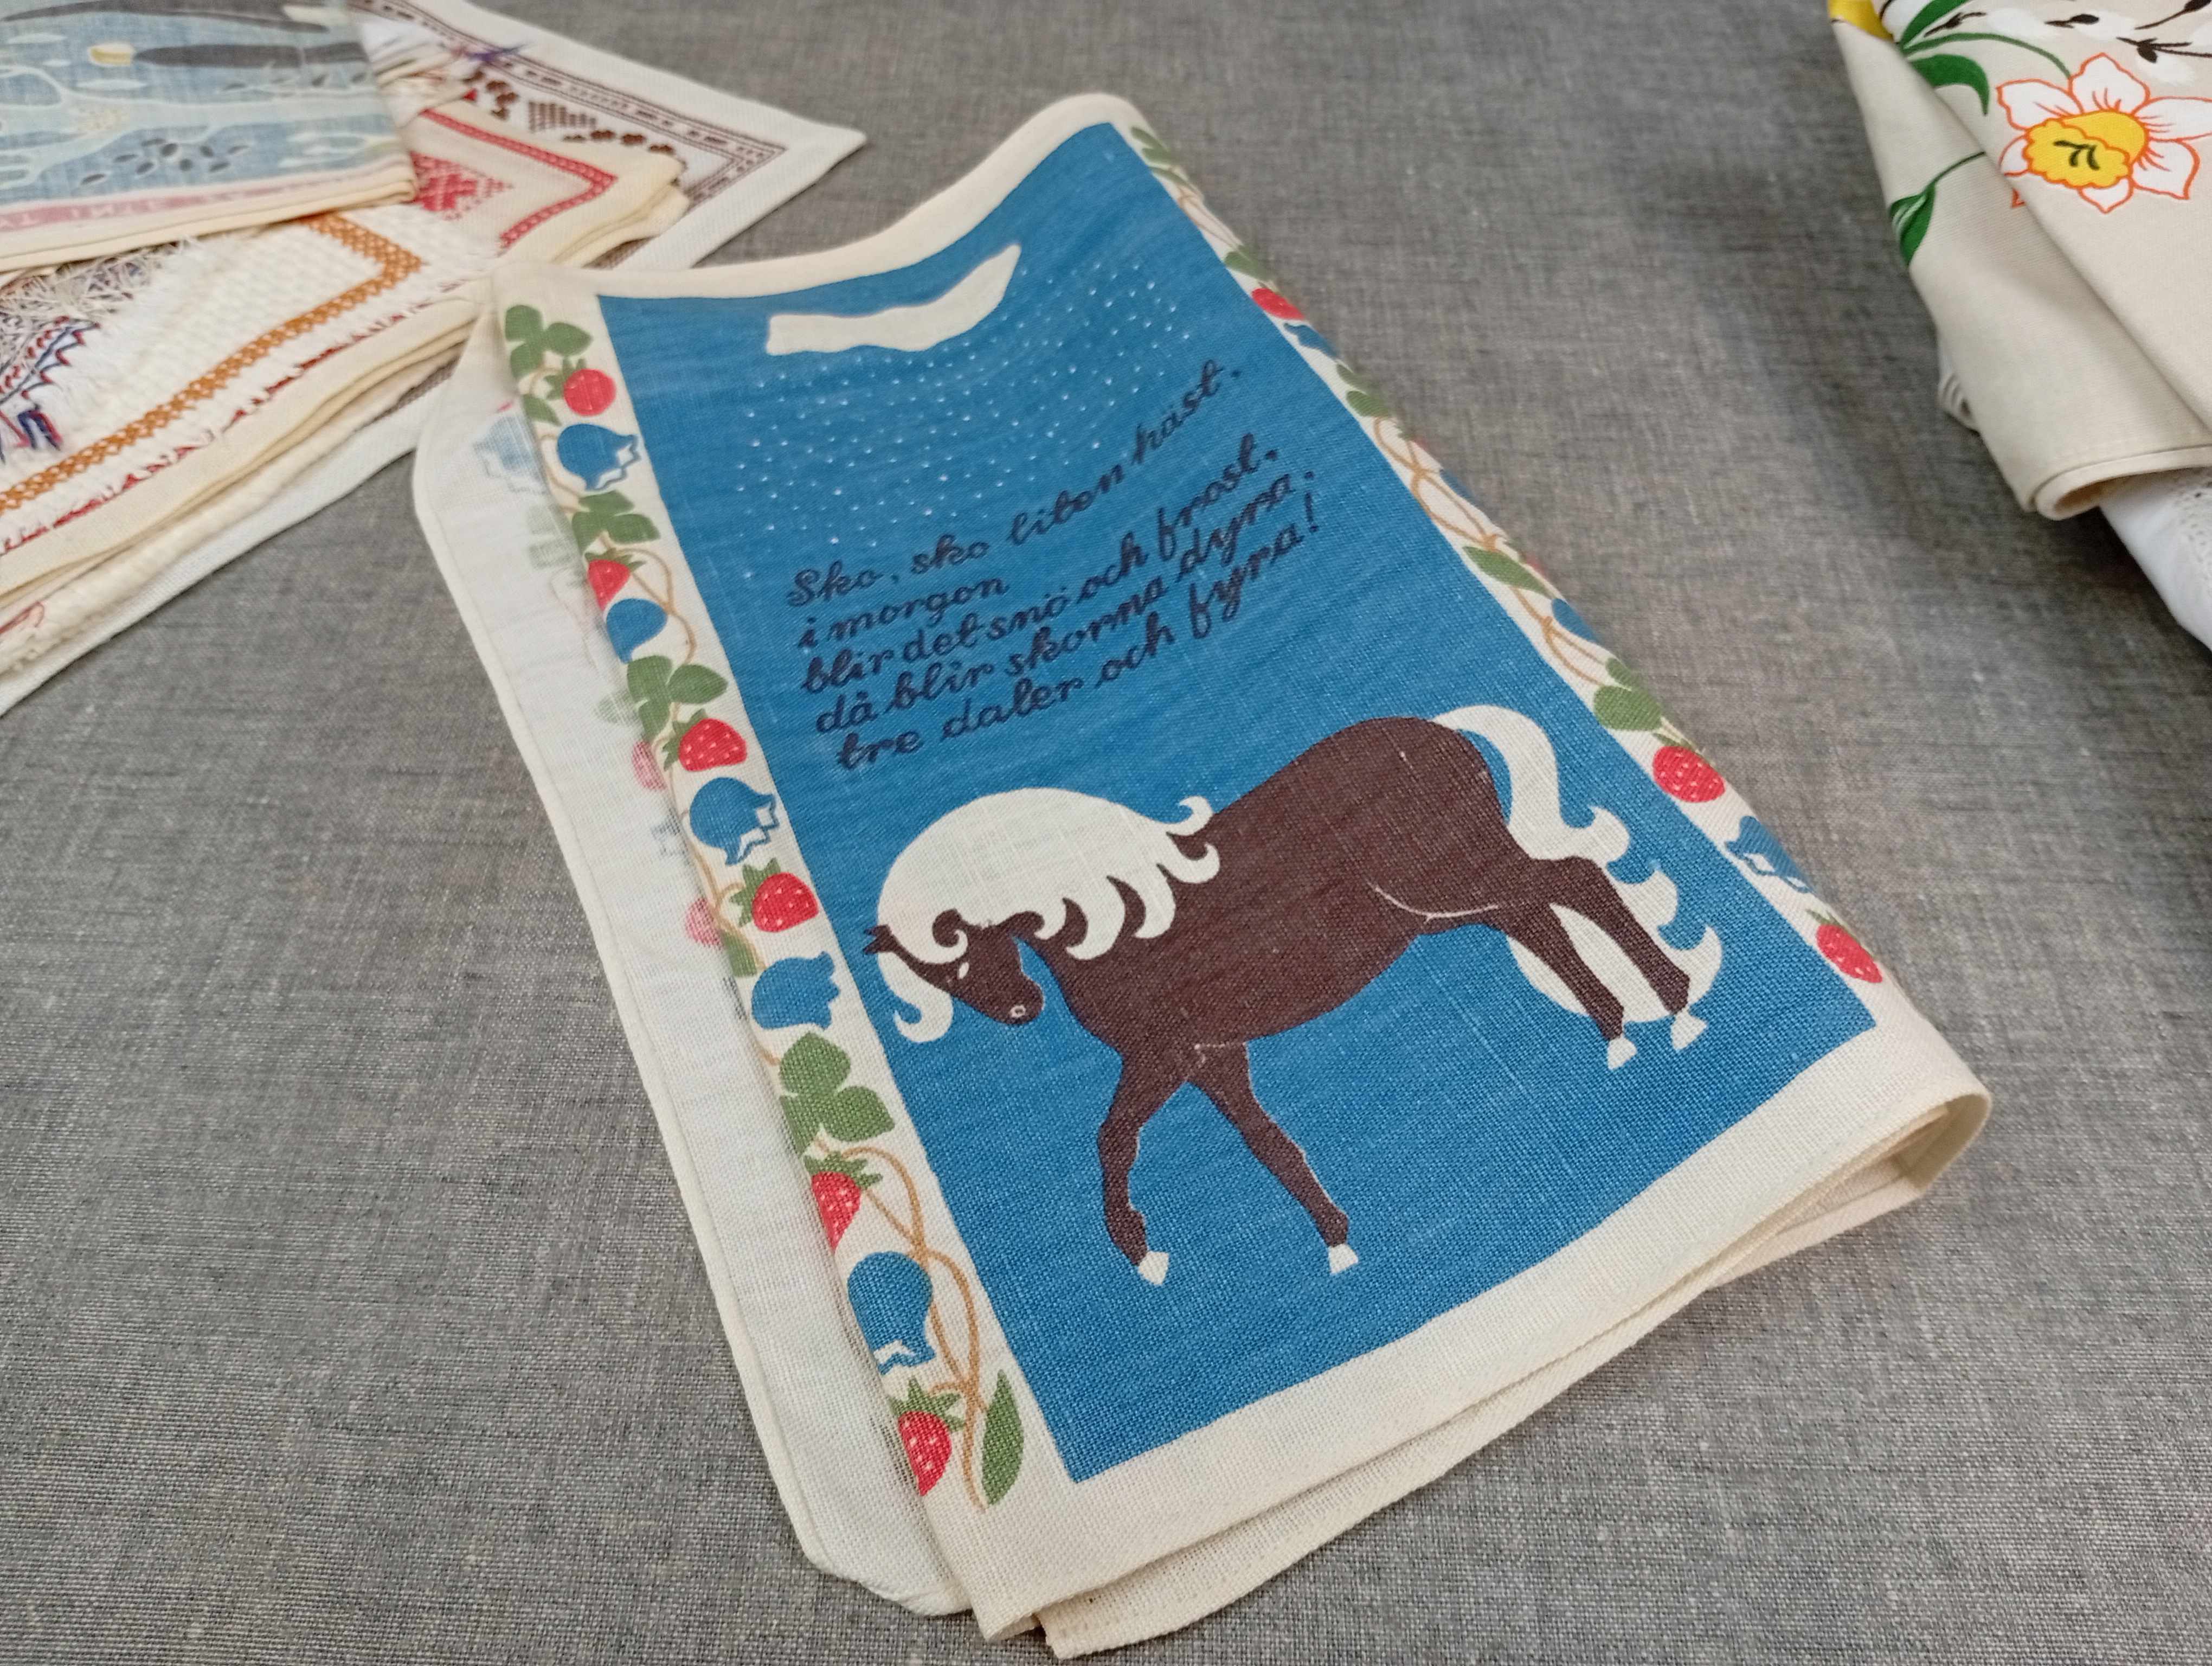 Sko, sko liten häst.
i morgon
blir det snö och frost.
då blir skorna dyra.
tre daler och fyra!